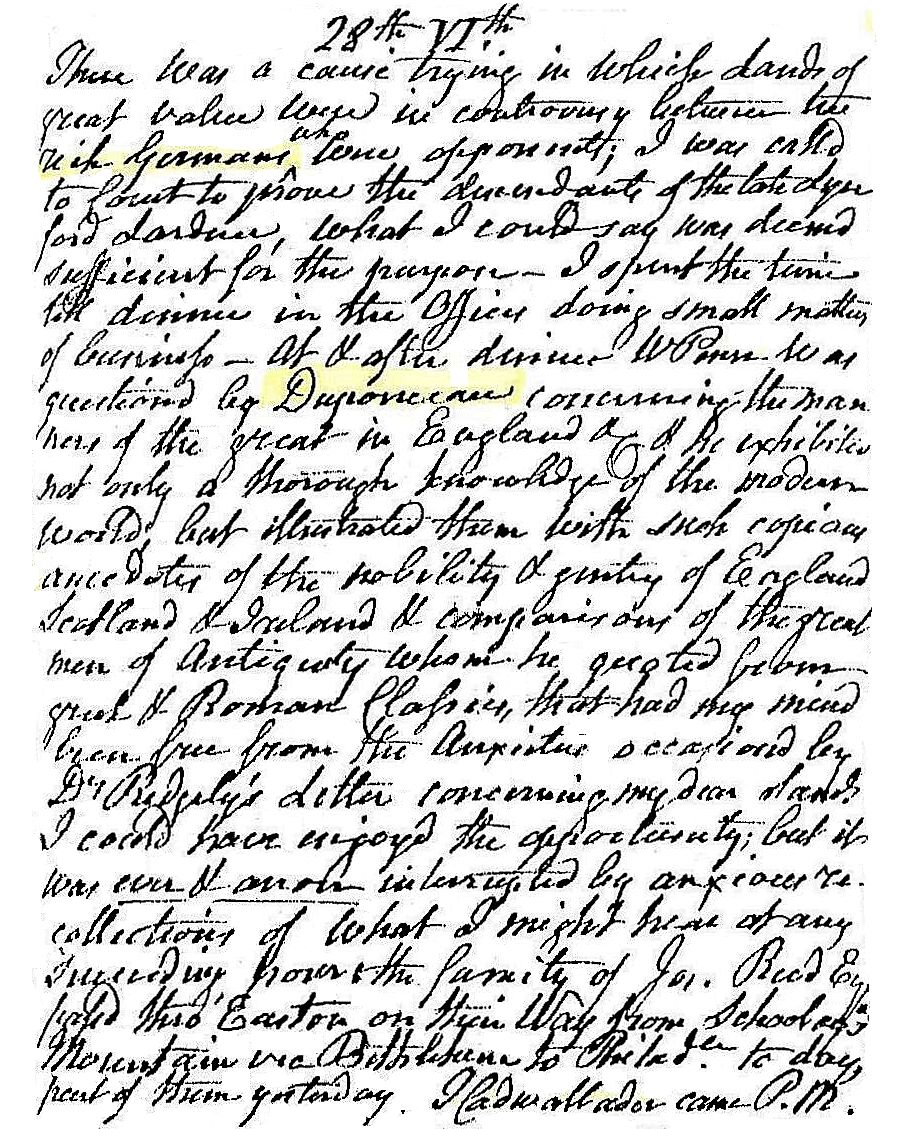 28th VIth
There was a cause trying in which Lands of
great value were in controversy between the
rich Germans were opponents; I was call'd
to Court to prove the descendants of the late Lyn
ford Lardner, what I could say was deem'd
sufficient for the purpose – I spent the time
till dinner in the Office doing small matters
of business – At & after dinner W Penn was
questiond by Duponceau concerning the man
ners of the great in England & & he exhibited
not only a thorough knowledge of the modern
world, but illustrated them with such copious
anecdotes of the nobility & gentry of England
Scotland & Ireland & comparisons of the great
men of Antiquity whom he quoted from
greek & Roman Classics, that had my mind
been free from the Anxieties occasiond by
Dr Ridgely's Letter concerning my dear
I could have enjoyd the opportunity; but it
was ever & anon interrupted by anxious re-
collections of what I might hear at any
succeeding hour the family of Jas. Read Esq
passd thro' Easton on their Way from School
Mountain via Bethlehem to Philada. to day,
part of them yesterday. Cadwallader came P.M.